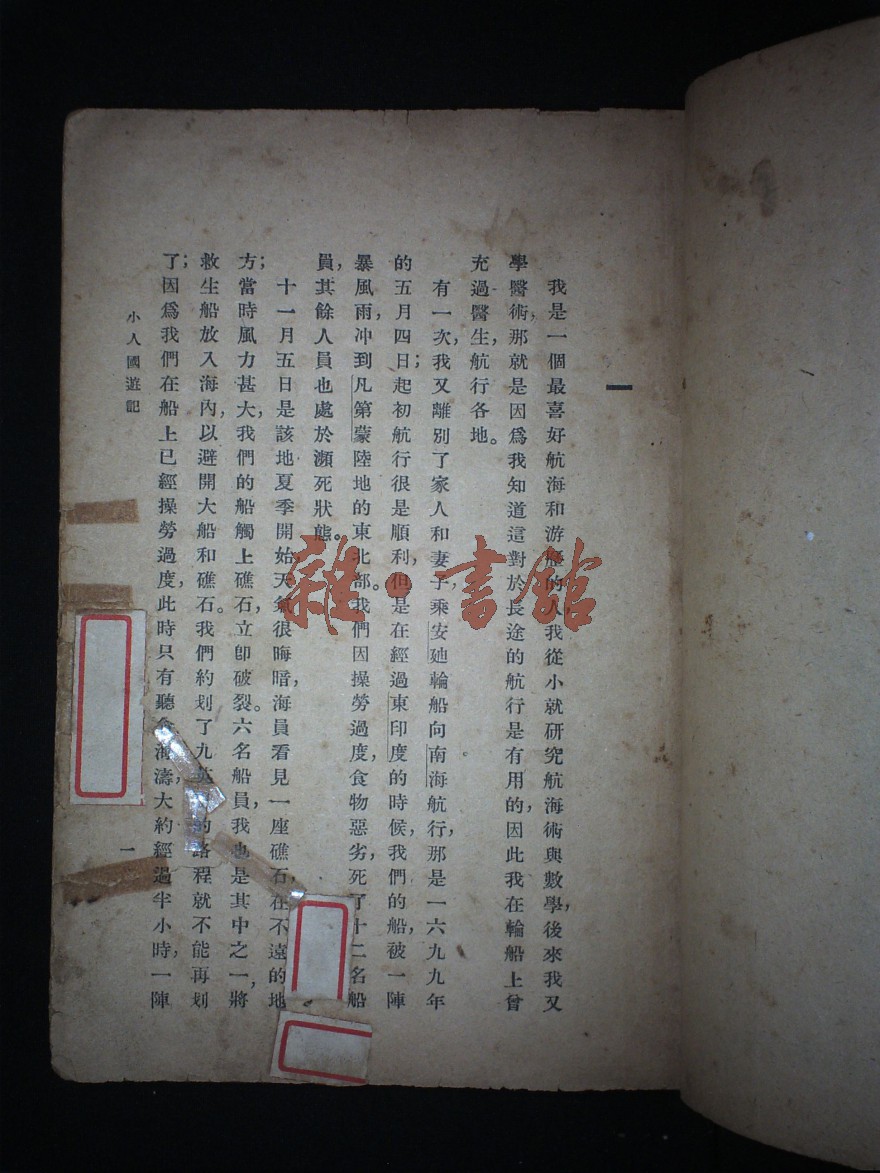 一
我是一個最喜好航海和游歷的人,我從小就研究航海術與數學,後來我又
學醫術,那就是因爲我知道這對於長途的航行是有用的,因此我在輪船上曾
充過醫生,航行各地。
有一次,我又離別了家人和妻子,乘安廸輪船向南海航行,那是一六九九年
的五月四日;起初航行很是順利,但是在經過東印度的時候,我們的船,被一陣
暴風雨,冲到凡第蒙陸地的東北部。我們因操勞過度,食物惡劣,死了十二名船
員,其餘人員也處於瀕死狀態。
十一月五日是該地夏季開始,天氣很晦暗,海員看見一座礁石,在不遠的地
方;當時風力甚大,我們的船觸上礁石,立卽破裂。六名船員,我也是其中之一,將
救生船放入海內,以避開大船和礁石。我們約划了九的路程就不能再划
了;因爲我們在船上已經操勞過度,此時只有聽海濤,大約經過半小時,一陣
小人國遊記
一
雜·書館